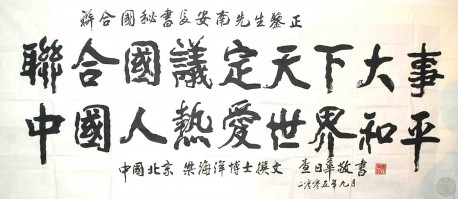 聯合國秘書長安南先生鑒正
聯合國議定天下大事
中國人熱愛世界和平
中國北京 梁海洋博士撰文 查日華敬書
二零零五年九月